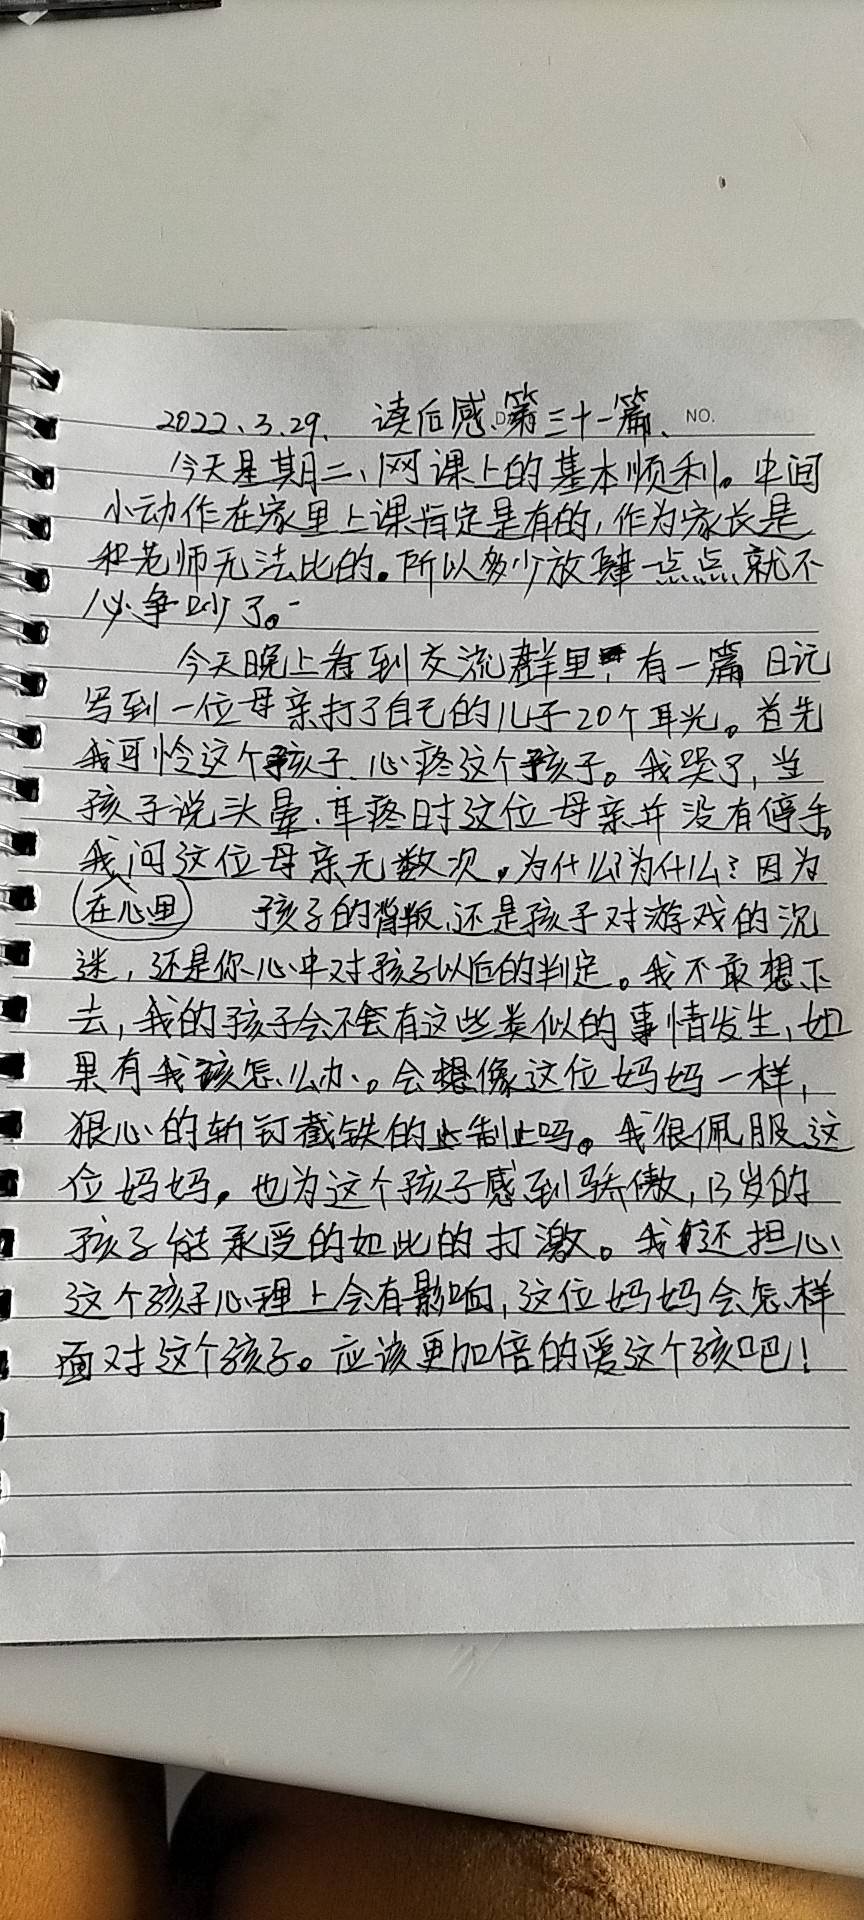 2022、3.29. 读后感、第三十一篇、 NO.
今天是星期二、网课上的基本顺利。中间
小动作在家里上课肯定是有的，作为家长是
和老师无法比的。所以多少放肆一点点就不
必争吵了。
今天晚上看到交流群里有一篇日记
写到一位母亲打了自己的儿子20个耳光。首先
我可怜这个孩子、心疼这个孩子。我哭了，当
孩子说头晕、耳疼时这位母亲并没有停手。
我问这位母亲无数次，为什么？为什么？因为
在心里 孩子的背叛、还是孩子对游戏的沉
迷，还是你心中对孩子以后的判定。我不敢想下
去，我的孩子会不会有这些类似的事情发生、如
果有我该怎么办。会想像这位妈妈一样，
狠心的斩钉截铁的止制止吗。我很佩服这
位妈妈，也为这个孩子感到骄傲，13岁的
孩子能承受的如此的打激。我还担心
这个孩子心理上会有影响，这位妈妈会怎样
面对这个孩子。应该更加倍的爱这个孩吧！